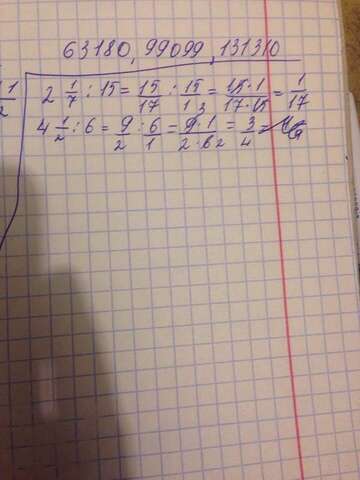 63180, 99099, 131310
2 1/7 : 15 = 15/17 : 15/1 = 15·1/17·15 = 1/17
4 1/2 : 6 = 9/2 : 6/1 = 9·1/2·6 2 = 3/4 =